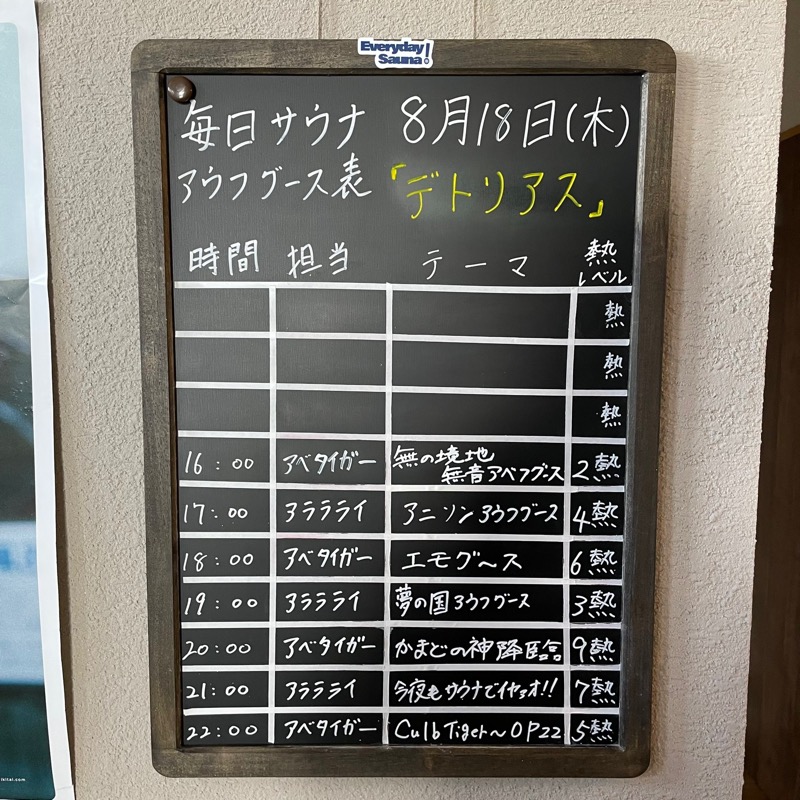 Everyday
Sauna!
毎日サウナ 8月18日(木)
アウフグース表 『デトリアス』
時間 担当 テーマ 熱レベル
熱
熱
熱
16:00 アベタイガー 無の境地 無音アベフグース 2熱
17:00 アラライ アニソンアウフグース 4熱
18:00 アベタイガー エモグ〜ス 6熱
19:00 アラライ 夢の国アウフグース 3熱
20:00 アベタイガー かまどの神降臨 9熱
21:00 アラライ 今夜もサウナでイヤョオ!! 7熱
22:00 アベタイガー Culb Tiger〜OP22 5熱